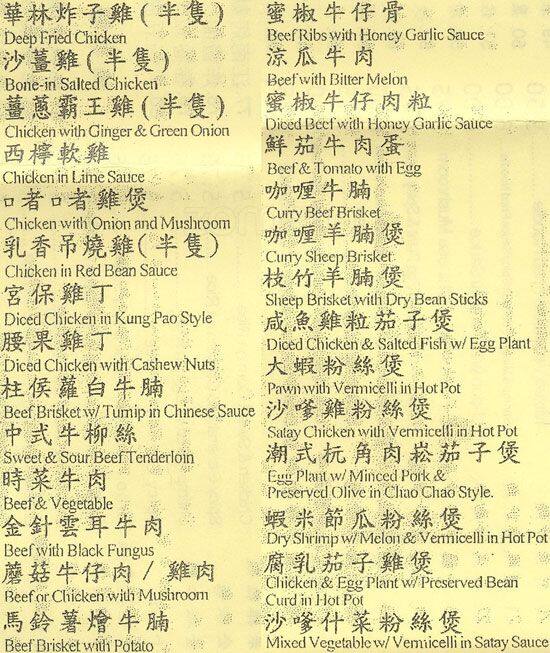 華林炸子雞(半隻)
Deep Fried Chicken
沙薑雞(半隻)
Bone-in Salted Chicken
薑蔥霸王雞(半隻)
Chicken with Ginger & Green Onion
西檸軟雞
Chicken in Lime Sauce
口者口者雞煲
Chicken with Onion and Mushroom
乳香吊燒雞(半隻)
Chicken in Red Bean Sauce
宮保雞丁
Diced Chicken in Kung Pao Style
腰果雞丁
Diced Chicken with Cashew Nuts
柱侯蘿白牛腩
Beef Brisket w/ Turnip in Chinese Sauce
中式牛柳絲
Sweet & Sour Beef Tenderloin
時菜牛肉
Beef & Vegetable
金針雲耳牛肉
Beef with Black Fungus
蘑菇牛仔肉/雞肉
Beef or Chicken with Mushroom
馬鈴薯燴牛腩
Beef Brisket with Potato
蜜椒牛仔骨
Beef Ribs with Honey Garlic Sauce
涼瓜牛肉
Beef with Bitter Melon
蜜椒牛仔肉粒
Diced Beef with Honey Garlic Sauce
鮮茄牛肉蛋
Beef & Tomato with Egg
咖喱牛腩
Curry Beef Brisket
咖喱羊腩煲
Curry Sheep Brisket
枝竹羊腩煲
Sheep Brisket with Dry Bean Sticks
咸魚雞粒茄子煲
Diced Chicken & Salted Fish w/ Egg Plant
大蝦粉絲煲
Pawn with Vermicelli in Hot Pot
沙嗲雞粉絲煲
Satay Chicken with Vermicelli in Hot Pot
潮式杬角肉崧茄子煲
Egg Plant w/ Minced Pork &
Preserved Olive in Chao Chao Style.
蝦米節瓜粉絲煲
Dry Shrimp w/ Melon & Vermicelli in Hot Pot
腐乳茄子雞煲
Chicken & Egg Plant w/ Preserved Bean
Curd in Hot Pot
沙嗲什菜粉絲煲
Mixed Vegetable w/ Vermicelli in Satay Sauce